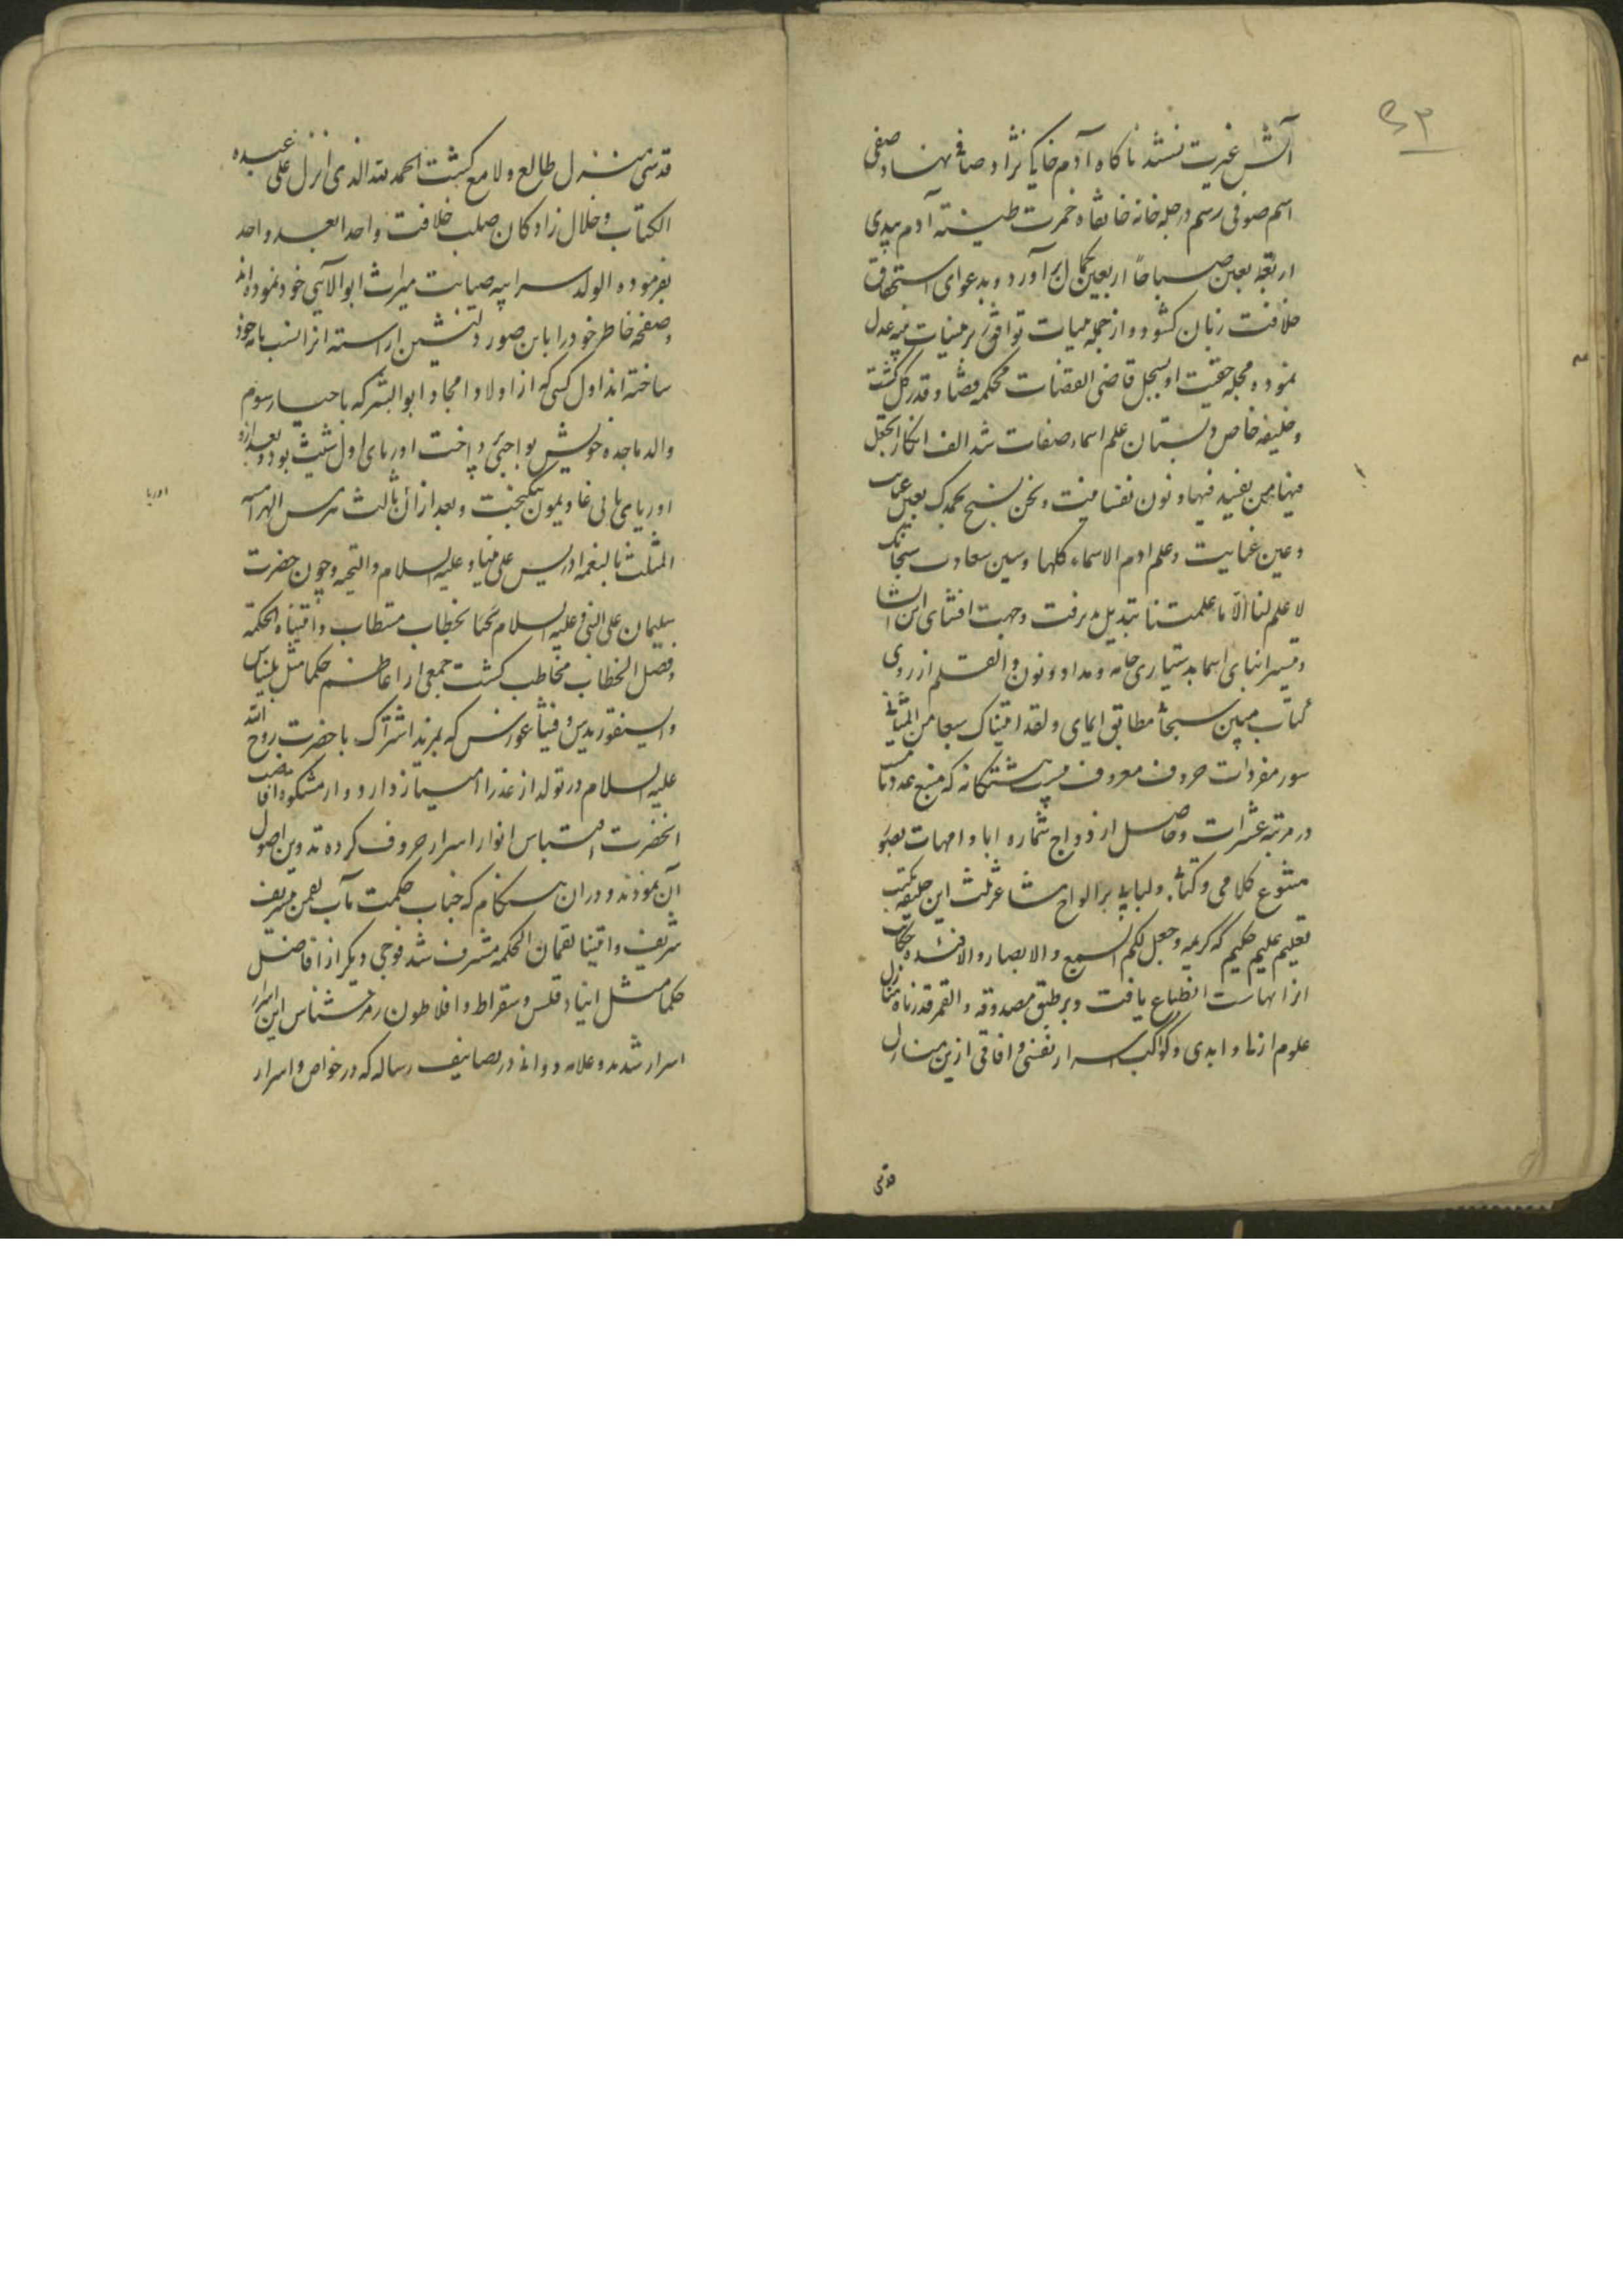 ۵۳
آتش غیرت نشسته ناکاه آدم خاکی نژاد صافی نهاد صفی
اسم صوفی رسم در چله خانه خانقاه خمرت طینته آدم بیدی
اربعین صباحا اربعین بکمال بر آورد و بدعوای استحقاق
خلافت زبان کشود و از جمله
نموده محله حقیت او بسجل قاضی القضات محکمه قضا و قدر کشت
و خلیفه خاص دبستان علم اسماء صفات شد الف انکار اتجعل
فیها من یفسد فیها و نون نفسانیت و نحن نسبح بحمدک بعین
و عین عنایت و علم ادم الاسماء کلها و سین سعادت سبحانک
لا علم لنا الا ما علمتنا تبدیل پذیرفت و جهت افشای این
و تفسیر انبای اسما بدستیاری خامه و مداد و نون و القلم از روی
کتاب مبین سبحانه مطابق ایمای ولقد اتیناک سبعا من المثانی
سور مفردات حروف معروف بیست هشتکانه که منبع
در مرتبه عشرات و حاصل ازدواج شماره ابا و امهات
متنوع کلامی و کتابی و لبابی بر الواح مشاعر ثلث این خلیفه مکتب
تعلیم علیم حکیم که کریمه و جعل لکم السمع و الابصار و الافئده
از انهاست انطباع یافت و بر طبق مصدوقه و القمر قدرناه منازل
علوم ازلی و ابدی و کواکب اسرار نفسی و افاقی ازین منازل
قدسی
قدسی منزل طالع و لامع کشت الحمد لله الذی انزل علی عبده
الکتاب و خلال زادکان صلب خلافت واحدا بعد واحد
بفرموده الولد سر ابیه صیانت میراث ابو الآبای خود نموده اند
و صفحه خاطر خود را باین صور دلنشین اراسته
ساخته اند اول کسی که از اولاد امجاد ابو البشر که باحیا رسوم
والد ماجده خویش بواجبی پرداخت اوریای اول شیث بود و بعد ازو
اوریای ثانی غاذیمون نیکبخت و بعد از ان ثالث هرمس الهرامسه
المثلث بالنعمه ادریس علی نبینا و علیه السلام و التحیه و چون حضرت
سلیمان علی النبی و علیه السلام بخطاب مستطاب و اتیناه الحکمه
و فصل الخطاب مخاطب کشت جمعی از اعاظم حکما مثل بلیناس
و فیثاغورس که بمزید اشتراک با حضرت روح الله
علیه السلام در تولد از عذرا امتیاز دارد و از مشکوة
انحضرت اقتباس انوار اسرار حروف کرده تدوین اصول
آن نمودند و در ان هنکام که جناب حکمت مآب لقمن بتشریف
شریف و اتینا لقمان الحکمه مشرف شد فوجی دیکر از افاضل
حکما مثل انباذقلس و سقراط و افلاطون رمز شناس این
اسرار شدند و علامه دوانی در تصانیف رساله که در خواص و اسرار
اوریا